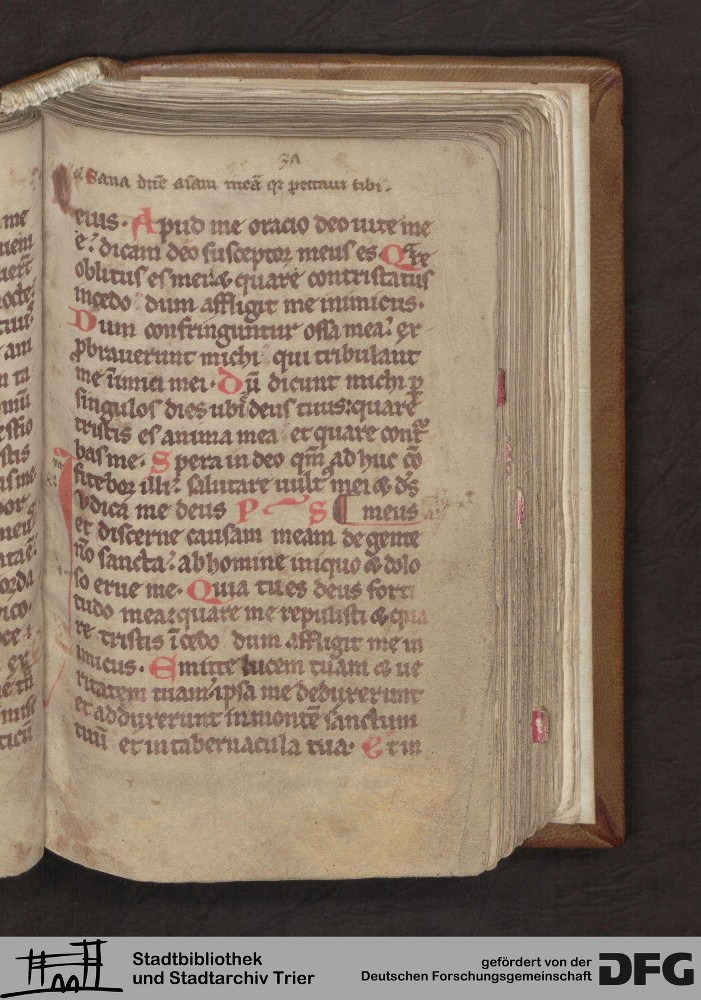 31
Sana dn̄e aīam meā qꝛ peccaui tibi.
eius. Apud me oracio deo uite me
e? dicam deo susceptoꝛ meus es Qͣre
oblitus es mei & quare contristatus
incedo dum affligit me inimicus.
Dum confringuntur ossa mea? ex
ꝓbrauerunt michi qui tribulant
me īimici mei. Dū dicunt michi ꝑ
singulos dies ubi deus tuus: quare
tristis es anima mea et quare cont̄
bas me. Spera in deo qm̄ ad huc cō
fiteboꝛ illi? salutare uult' mei & ds̄
Vdica me deus PS meus
et discerne causam meam de gente
nō sancta? ab homine iniquo & dolo
so erue me. Quia tu es deus forti
tudo mea: quare me repulisti & qua
re tristis īcedo dum affligit me in
imicus. Emitte lucem tuam & ue
ritatem tuam? ipsa me deduxerunt
et adduxerunt in montē sanctum
tuū et in tabernacula tua. Et in
Stadtbibliothek
und Stadtarchiv Trier
gefördert von der
Deutschen Forschungsgemeinschaft
DFG